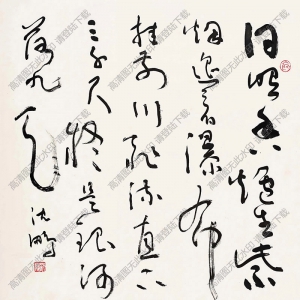 日照香爐生紫
烟遥看瀑布
挂前川飛流直下
三千尺疑是銀河
落九天
沈鹏